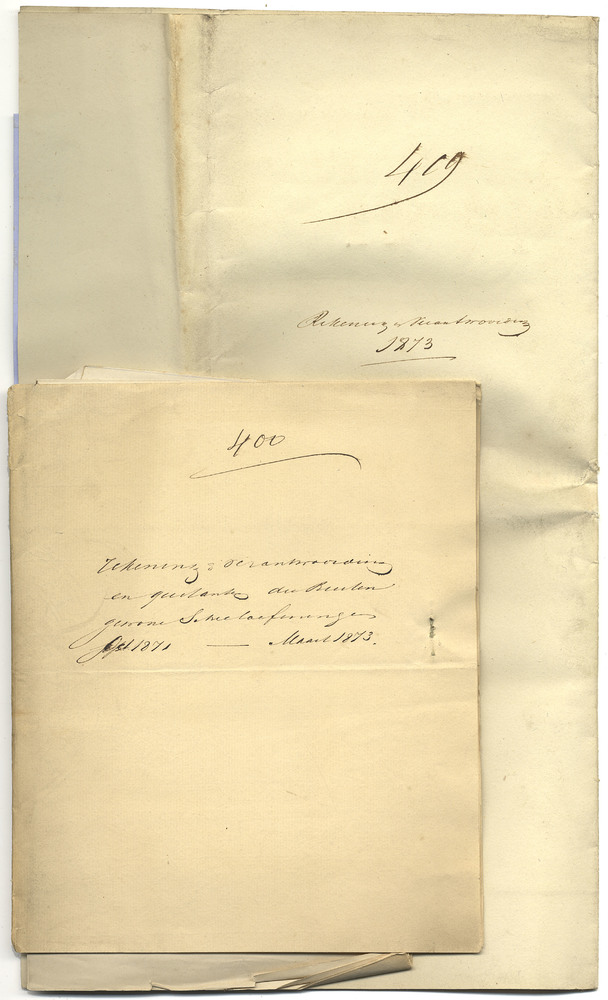 409
Rekening & Verantwoording
1873
400
Rekening & Verantwoording
en quitantie der Buiten
gewone Schietoefeningen
1871 — Maart 1873.